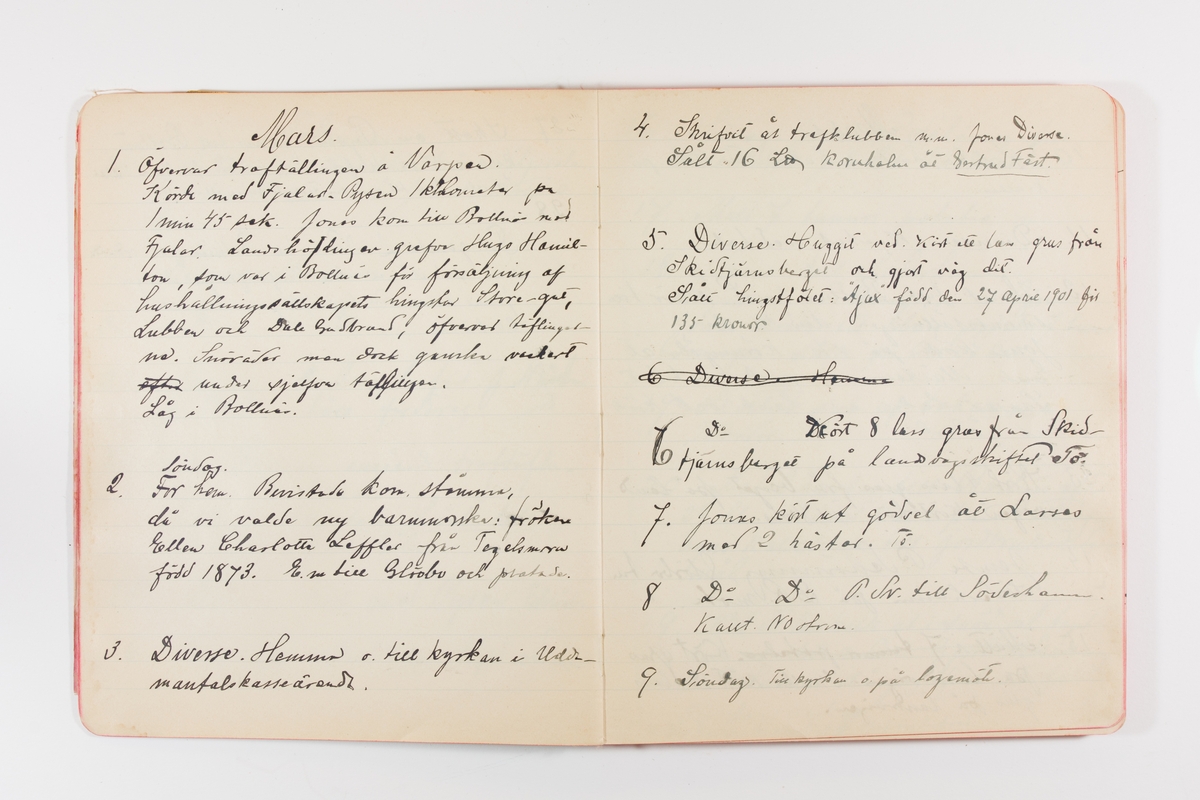 Mars.
1. Öfvervar traftäflingen å Varpen.
Körde med Fjalar-Pysen 1 kilometer på
1 min 45 sek. Jonas kom till Bollnäs med
Fjalar. Landshöfdingen grefve Hugo Hamil-
ton, som var i Bollnäs för försäljning af
hushållningssällskapets hingstar Store-gut,
Lubben och Dale Gudbrand, öfvervar täflingar-
na. Snöväder men dock ganska vackert
efter under sjelfva täflingen.
Låg i Bollnäs.
Söndag.
2. For hem. Bevistade kom. stämma,
då vi valde ny barnmorska: fröken
Ellen Charlotta Leffler från Tegelsmora
född 1873. E.m till Glösbo och pratade.
3. Diverse. Hemma o. till kyrkan i Udde-
mantalskasseärende.
4. Skrifvit åt trafklubben m.m. Jonas Diverse.
Sålt 16 kornhalm åt Gertrud Fäst
5. Diverse. Huggit ved. Kört ett lass grus från
Skidtjärnsberget och gjort väg dit.
Sålt hingstfölet: "Ajax" född den 27 April 1901 för
135 kronor.
6 Diverse. Hemma
6 Do Kört 8 lass grus från Skid-
tjärnsberget på landsvägsskiftet To.
7. Jonas kört ut gödsel åt Larses
med 2 hästar. To.
8 Do Do P. Sv. till Söderhamn.
9. Söndag. Till kyrkan o. på logemöte.